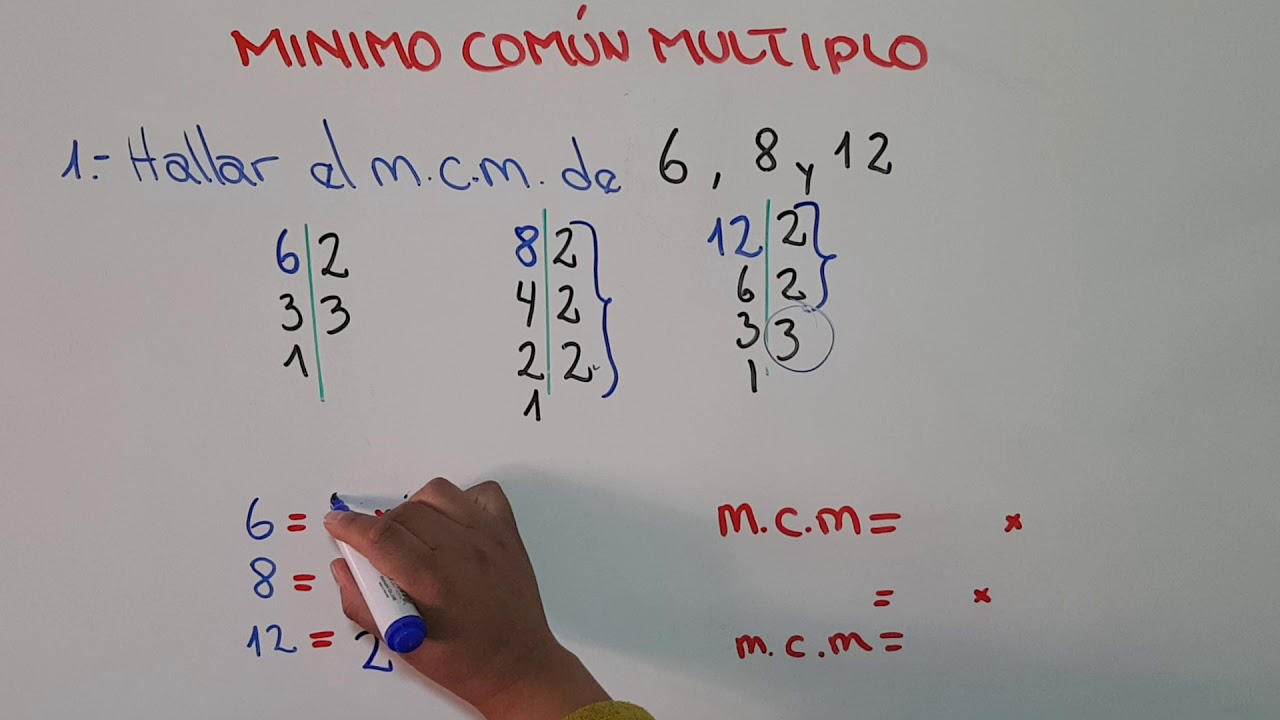 MINIMO COMÚN MULTIPLO
1.- Hallar el m.c.m. de 6, 8 y 12
6 | 2
3 | 3
1 |
8 | 2
4 | 2
2 | 2
1
12 | 2
6 | 2
3 | 3
1
6 =
8 =
12 = 2
m.c.m = ×
= ×
m.c.m =